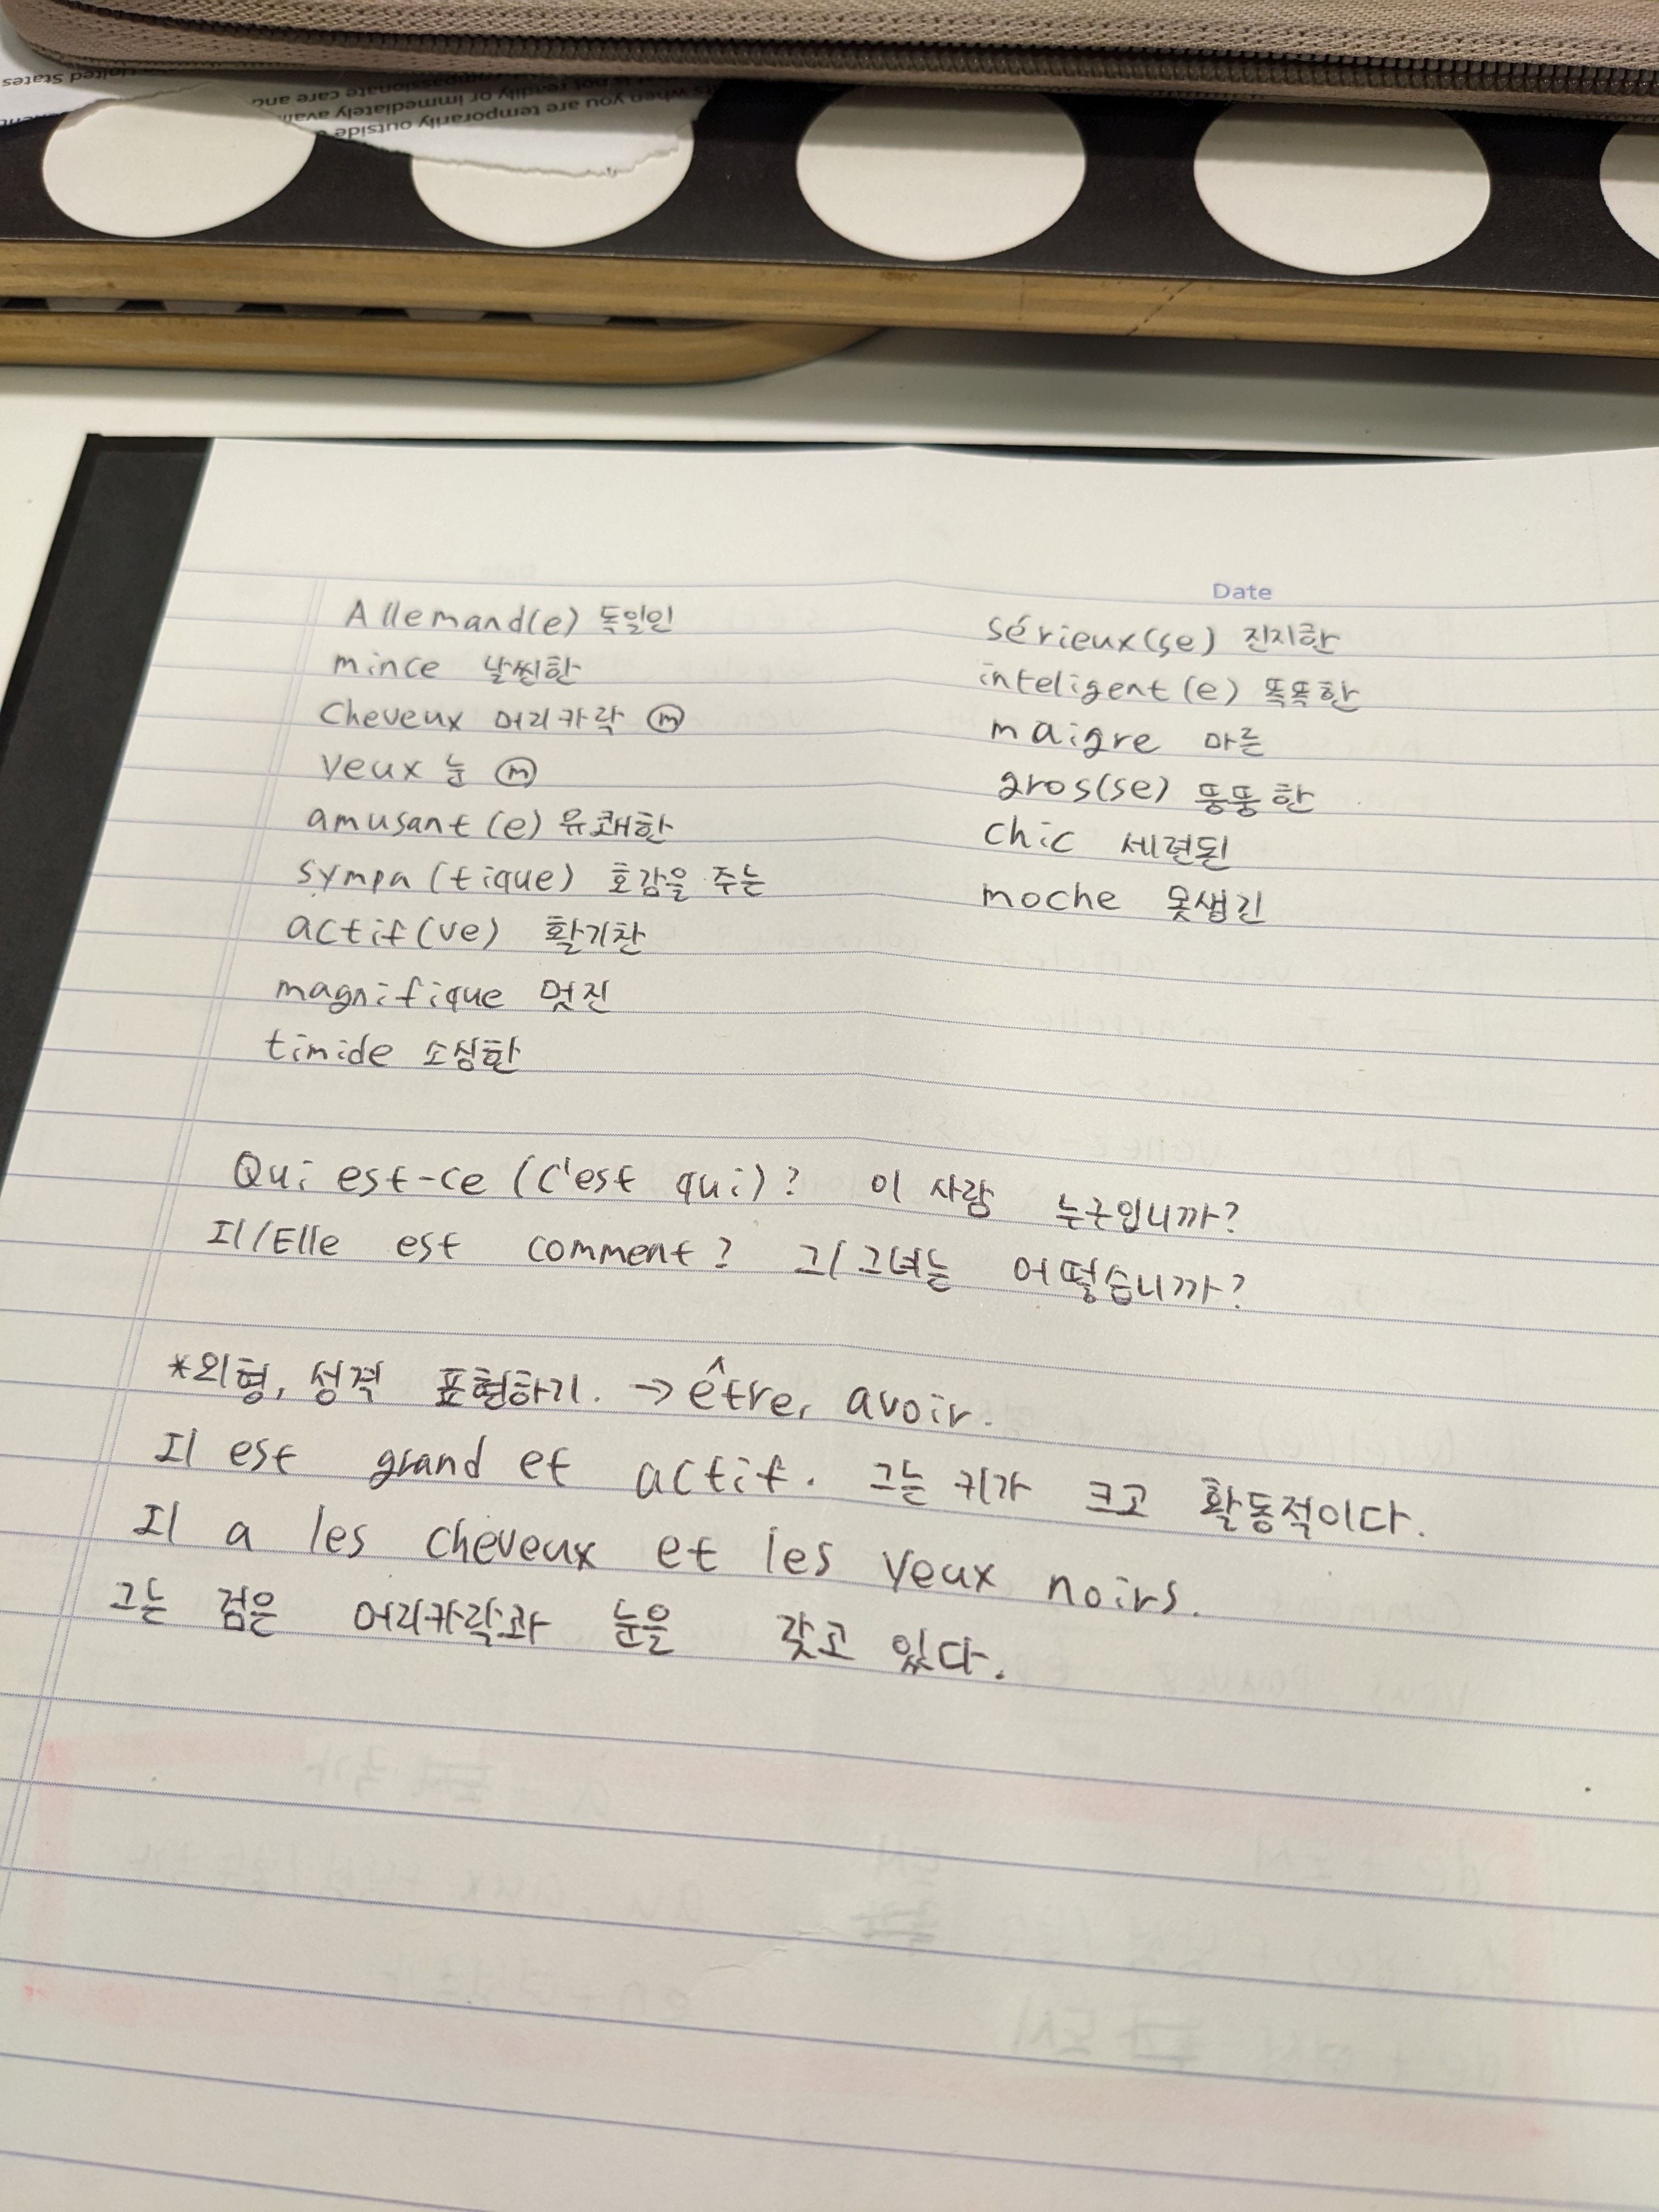 United States
ts when you are temporarily outside
not readily or immediately avail
mpassionate care and
Date
Allemand(e) 독일인
mince 날씬한
Cheveux 머리카락 ⓜ
Yeux 눈 ⓜ
amusant(e) 유쾌한
sympa(tique) 호감을 주는
actif(ve) 활기찬
magnifique 멋진
timide 소심한
sérieux(se) 진지한
inteligent(e) 똑똑한
maigre 마른
gros(se) 뚱뚱한
chic 세련된
moche 못생긴
Qui est-ce (c'est qui)? 이 사람 누구입니까?
Il/Elle est comment? 그/그녀는 어떻습니까?
*외형, 성격 표현하기. → être, avoir.
Il est grand et actif. 그는 키가 크고 활동적이다.
Il a les cheveux et les yeux noirs.
그는 검은 머리카락과 눈을 갖고 있다.